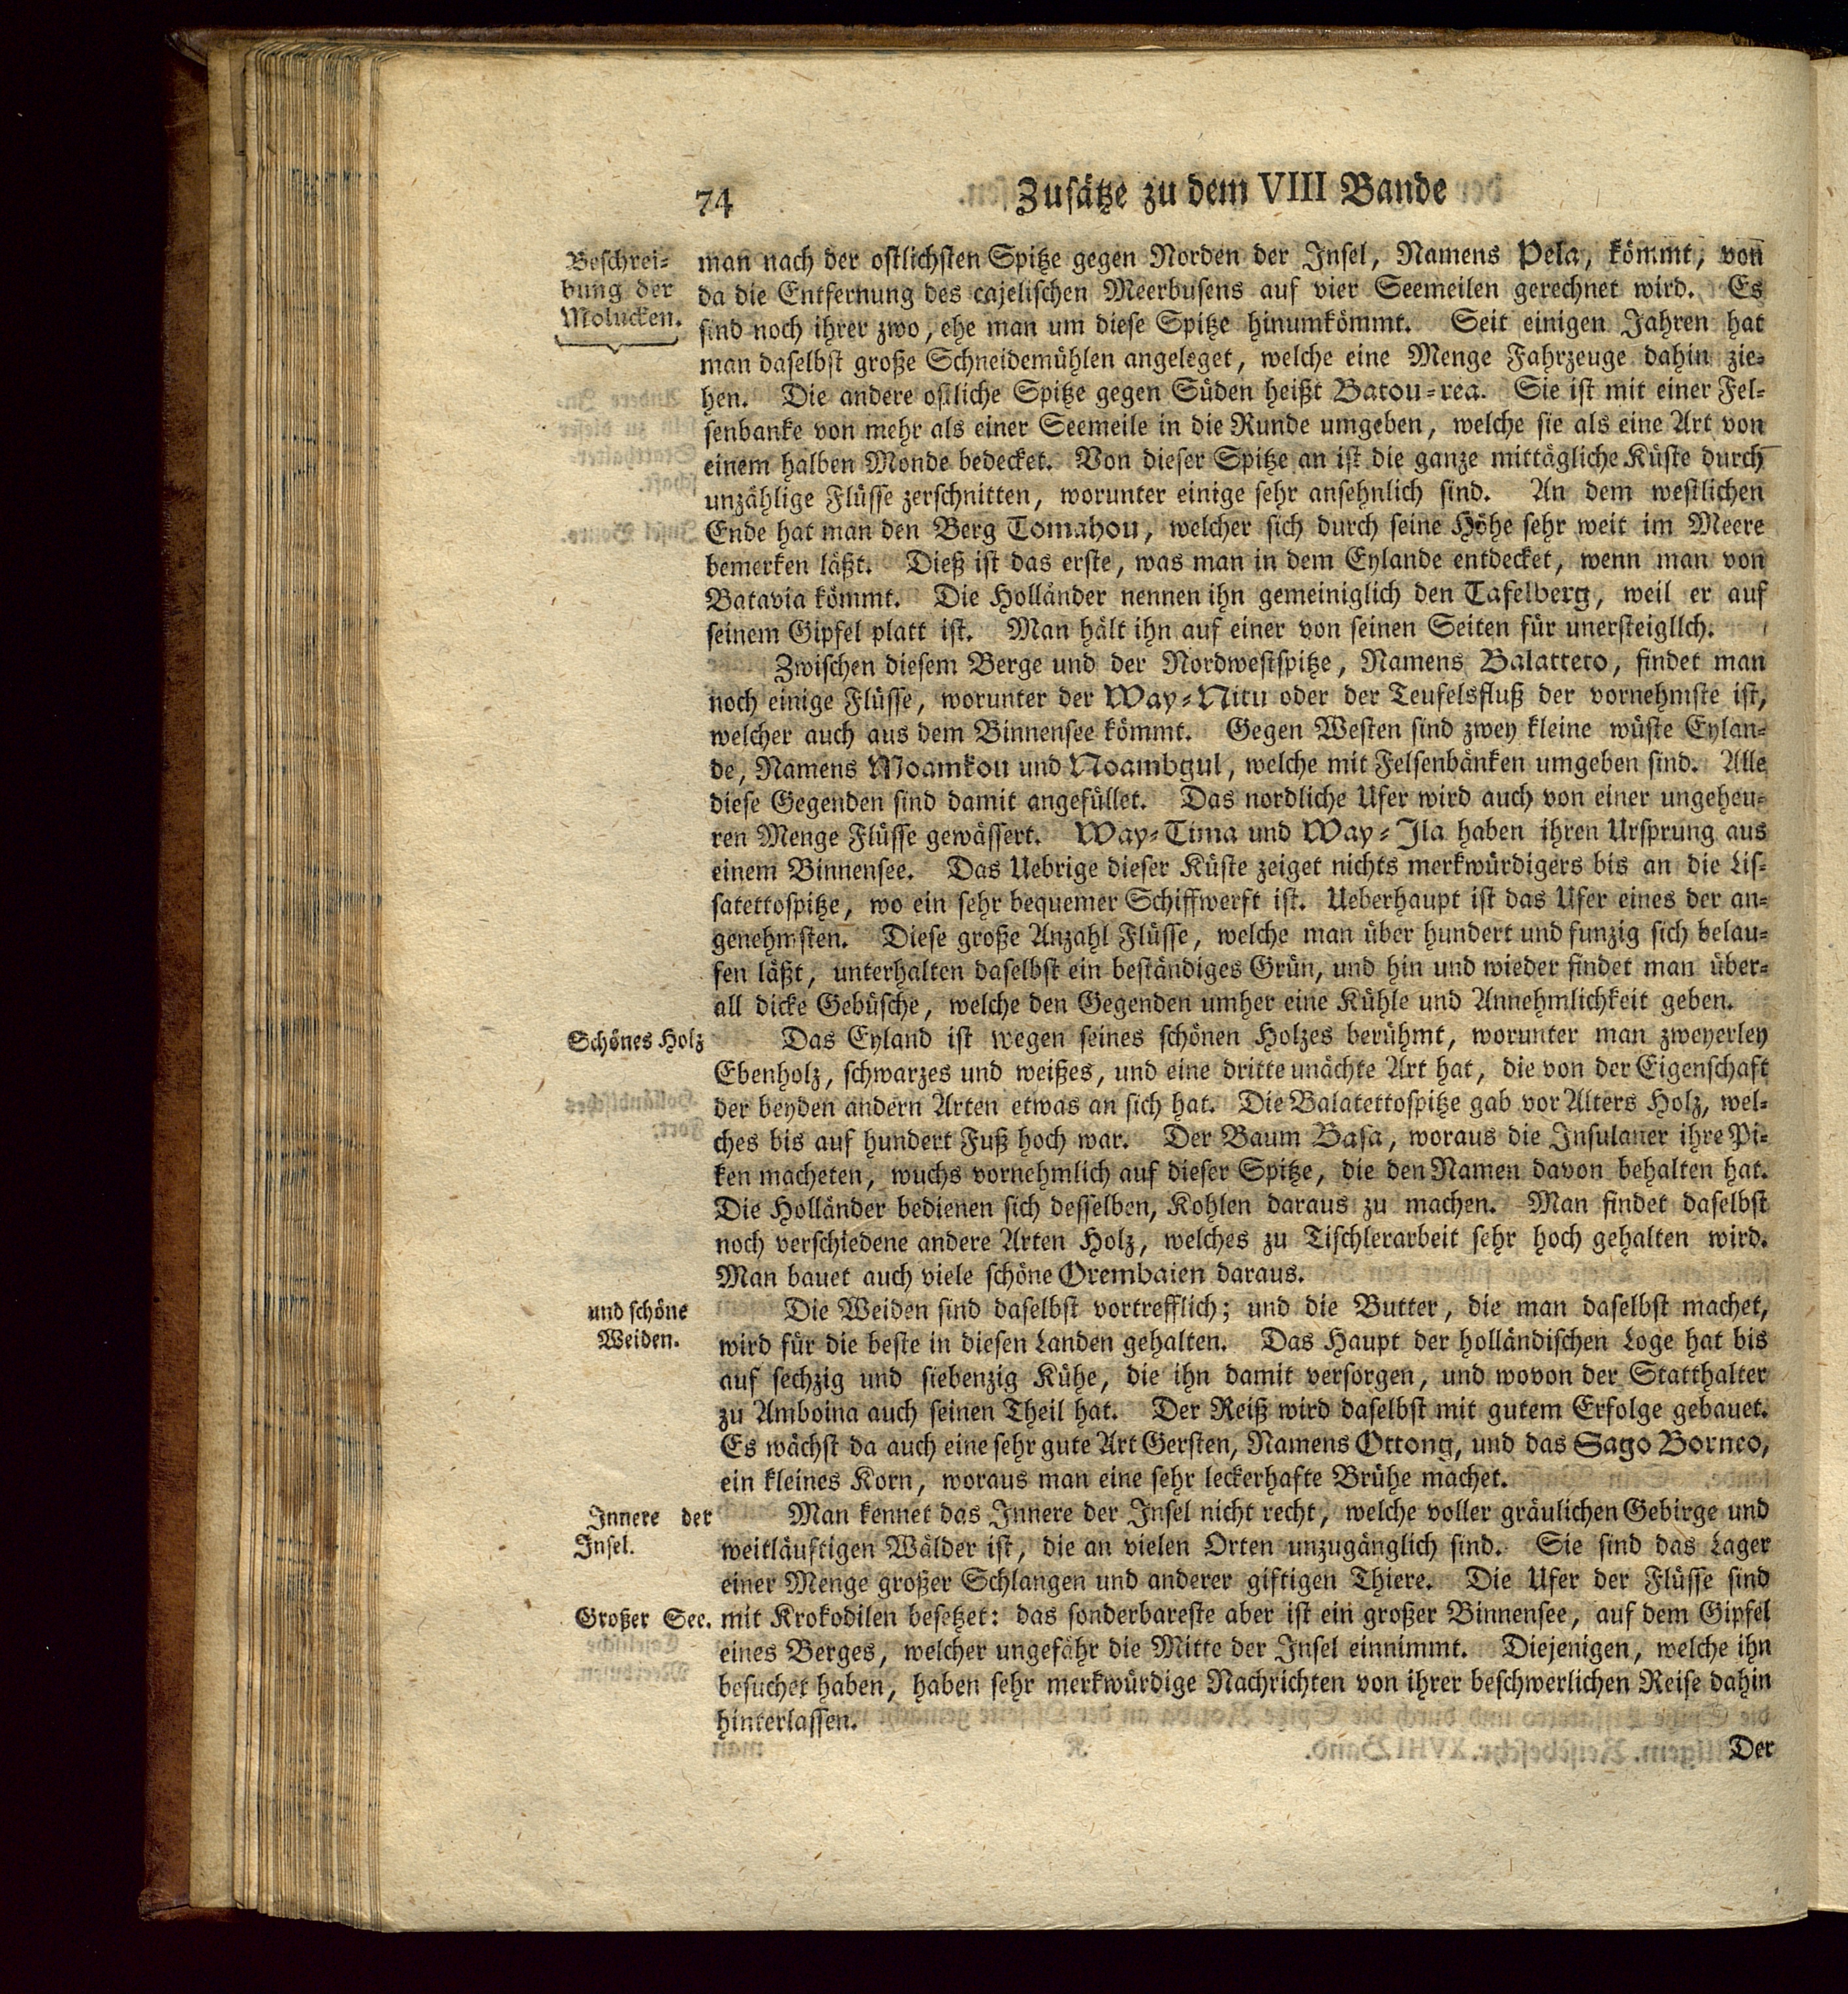 74
Zusätze zu dem VIII Bande
Beschrei-
bung der
Molucken.
man nach der ostlichsten Spitze gegen Norden der Insel, Namens Pela, kömmt, von
da die Entfernung des cajelischen Meerbusens auf vier Seemeilen gerechnet wird. Es
sind noch ihrer zwo, ehe man um diese Spitze hinumkömmt. Seit einigen Jahren hat
man daselbst große Schneidemühlen angeleget, welche eine Menge Fahrzeuge dahin zie-
hen. Die andere ostliche Spitze gegen Süden heißt Batou-rea. Sie ist mit einer Fel-
senbanke von mehr als einer Seemeile in die Runde umgeben, welche sie als eine Art von
einem halben Monde bedecket. Von dieser Spitze an ist die ganze mittägliche Küste durch
unzählige Flüsse zerschnitten, worunter einige sehr ansehnlich sind. An dem westlichen
Ende hat man den Berg Tomahou, welcher sich durch seine Höhe sehr weit im Meere
bemerken läßt. Dieß ist das erste, was man in dem Eylande entdecket, wenn man von
Batavia kömmt. Die Holländer nennen ihn gemeiniglich den Tafelberg, weil er auf
seinem Gipfel platt ist. Man hält ihn auf einer von seinen Seiten für unersteiglich.
Zwischen diesem Berge und der Nordwestspitze, Namens Balatteto, findet man
noch einige Flüsse, worunter der Way-Nitu oder der Teufelsfluß der vornehmste ist,
welcher auch aus dem Binnensee kömmt. Gegen Westen sind zwey kleine wüste Eylan-
de, Namens Moamkou und Noambgul, welche mit Felsenbänken umgeben sind. Alle
diese Gegenden sind damit angefüllet. Das nordliche Ufer wird auch von einer ungeheu-
ren Menge Flüsse gewässert. Way-Tima und Way-Ila haben ihren Ursprung aus
einem Binnensee. Das Uebrige dieser Küste zeiget nichts merkwürdigers bis an die Lis-
satettospitze, wo ein sehr bequemer Schiffwerft ist. Ueberhaupt ist das Ufer eines der an-
genehmsten. Diese große Anzahl Flüsse, welche man über hundert und funzig sich belau-
fen läßt, unterhalten daselbst ein beständiges Grün, und hin und wieder findet man über-
all dicke Gebüsche, welche den Gegenden umher eine Kühle und Annehmlichkeit geben.
Schönes Holz
Das Eyland ist wegen seines schönen Holzes berühmt, worunter man zweyerley
Ebenholz, schwarzes und weißes, und eine dritte unächte Art hat, die von der Eigenschaft
der beyden andern Arten etwas an sich hat. Die Balatettospitze gab vor Alters Holz, wel-
ches bis auf hundert Fuß hoch war. Der Baum Basa, woraus die Insulaner ihre Pi-
ken macheten, wuchs vornehmlich auf dieser Spitze, die den Namen davon behalten hat.
Die Holländer bedienen sich desselben, Kohlen daraus zu machen. Man findet daselbst
noch verschiedene andere Arten Holz, welches zu Tischlerarbeit sehr hoch gehalten wird.
Man bauet auch viele schöne Orembaien daraus.
und schöne
Weiden.
Die Weiden sind daselbst vortrefflich; und die Butter, die man daselbst machet,
wird für die beste in diesen Landen gehalten. Das Haupt der holländischen Loge hat bis
auf sechzig und siebenzig Kühe, die ihn damit versorgen, und wovon der Statthalter
zu Amboina auch seinen Theil hat. Der Reiß wird daselbst mit gutem Erfolge gebauet.
Es wächst da auch eine sehr gute Art Gersten, Namens Ottong, und das Sago Borneo,
ein kleines Korn, woraus man eine sehr leckerhafte Brühe machet.
Innere der
Insel.
Man kennet das Innere der Insel nicht recht, welche voller gräulichen Gebirge und
weitläuftigen Wälder ist, die an vielen Orten unzugänglich sind. Sie sind das Lager
einer Menge großer Schlangen und anderer giftigen Thiere. Die Ufer der Flüsse sind
Großer See.
mit Krokodilen besetzet: das sonderbareste aber ist ein großer Binnensee, auf dem Gipfel
eines Berges, welcher ungefähr die Mitte der Insel einnimmt. Diejenigen, welche ihn
besuchet haben, haben sehr merkwürdige Nachrichten von ihrer beschwerlichen Reise dahin
hinterlassen.
Der